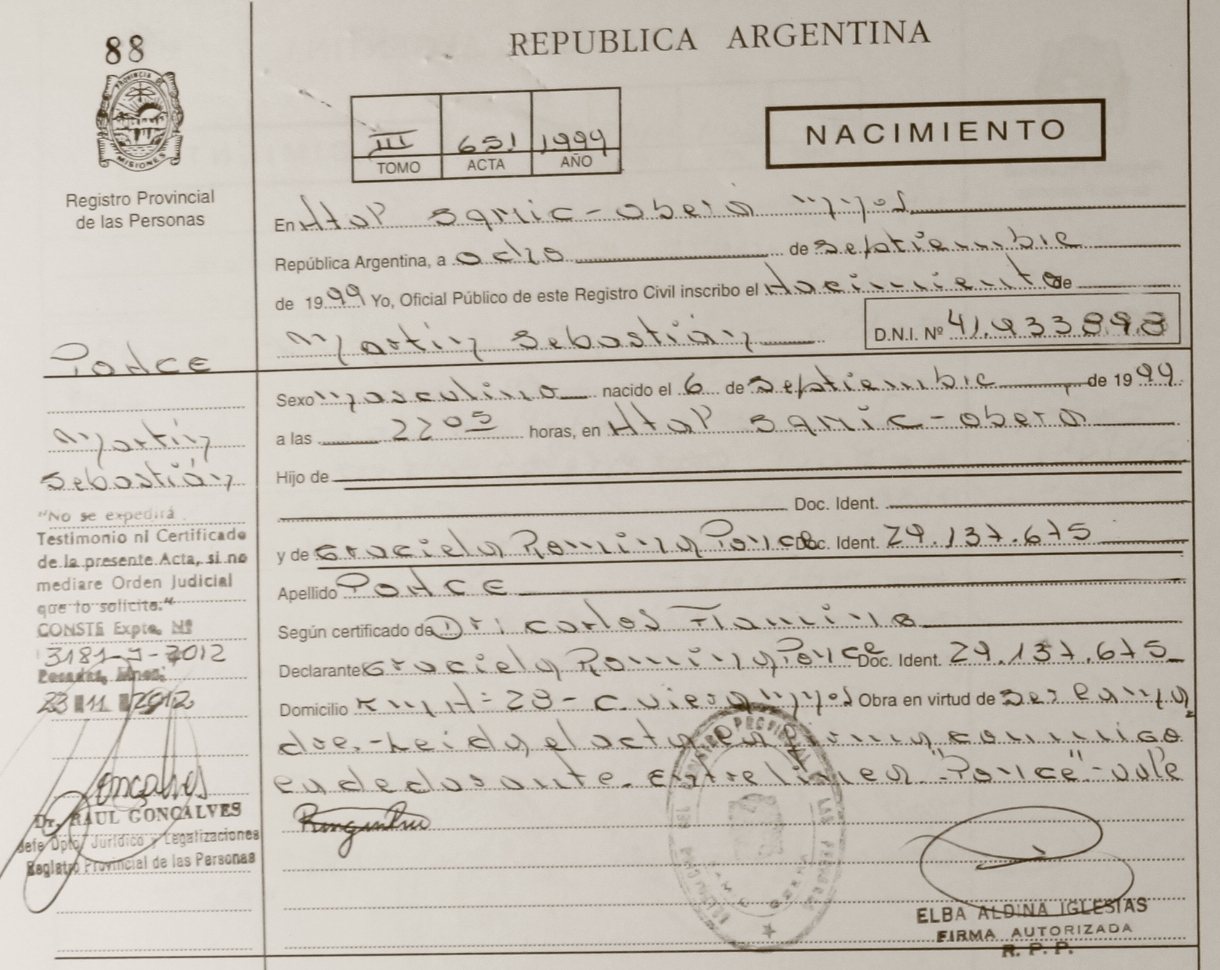 88
REPUBLICA ARGENTINA
PROVINCIA DE MISIONES
Registro Provincial
de las Personas
III 651 1999
TOMO ACTA AÑO
NACIMIENTO
En Htal Samic - Oberá
República Argentina, a ocho de septiembre
de 1999 Yo, Oficial Público de este Registro Civil inscribo el Nacimiento de
Martín Sebastián D.N.I. Nº
Ponce
Martín
Sebastián
Sexo masculino nacido el 6 de septiembre de 1999
a las 22 05 horas, en Htal Samic - Oberá
Hijo de
Doc. Ident.
y de Graciela Romina Ponce Doc. Ident. 29.137.675
Apellido Ponce
Según certificado de Dr: Carlos
Declarante Graciela Romina Ponce Doc. Ident. 29.137.675
Domicilio Obra en virtud de ser la ma
dre.- Leída el acta la firma conmigo
Entre líneas "Ponce" - vale
"No se expedirá
Testimonio ni Certificado
de la presente Acta, si no
mediare Orden Judicial
que lo solicite."
CONSTE Expte. Nº
3181-J-2012
Posadas, Mnes:
23 11 2012
Goncalves
Dr. RAUL GONCALVES
Jefe Dpto. Jurídico y Legalizaciones
Registro Provincial de las Personas
ELBA ALDINA IGLESIAS
FIRMA AUTORIZADA
R. P. P.